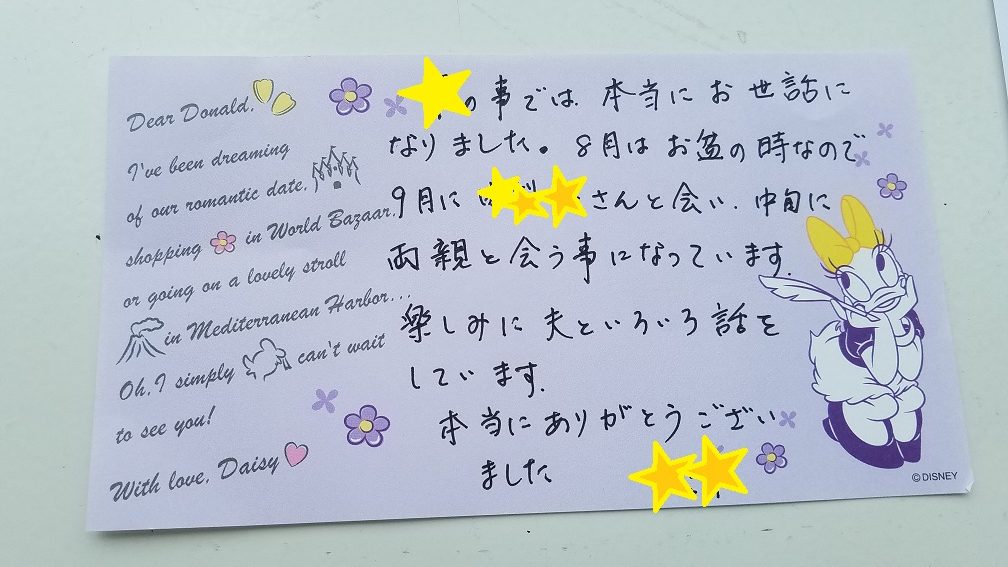 Dear Donald,
I've been dreaming
of our romantic date,
shopping in World Bazaar,
or going on a lovely stroll
in Mediterranean Harbor...
Oh, I simply can't wait
to see you!
With love, Daisy
の事では 本当に お世話に
なりました。8月は お盆の時なので
9月に さんと会い、中旬に
両親と会う事になっています。
楽しみに 夫といろいろ話を
しています。
本当にありがとうござい
ました
©DISNEY